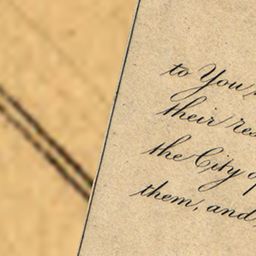 to You
their
the City
them, and